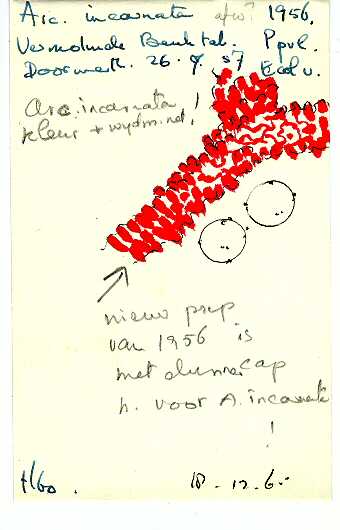 Arc. incarnata afw? 1956.
Vermolmde Beuktal. Ppvl.
Doorwerth. 26. 9. 57 Ecol v.
Arc. incarnata !
kleur + wydm. net.
nieuw prep
van 1956 is
met dunne cap
h. voor A. incarnata
!
18 - 12 - 60